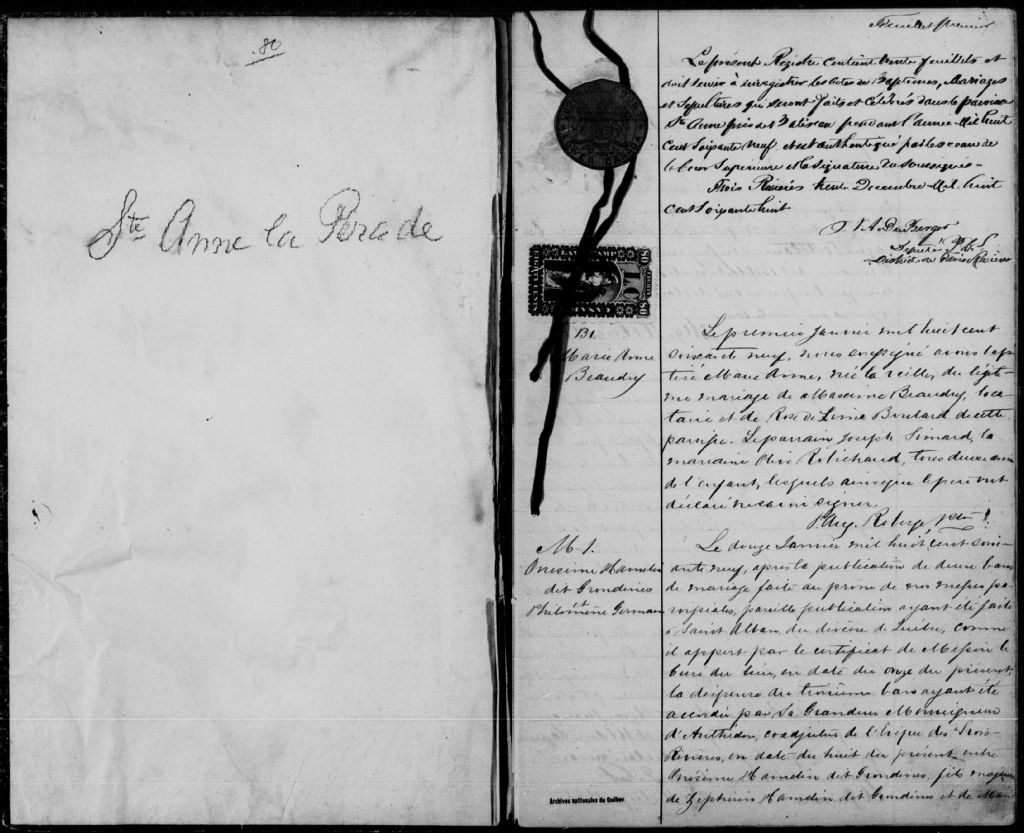 .80
Ste Anne la Perade
Feuillet premier
Le présent Registre contient trente feuillets et
doit servir à enregistrer les actes de Baptêmes, Mariages
et Sepultures qui seront faits et célébrés dans la paroisse
Ste Anne près de Batiscan pendant l'année Mil huit
cent soixante neuf et est authentiqué par le sceau de
la Cour Supérieure et la signature du soussigné.
Trois Rivières trente Decembre Mil huit
cent soixante huit
Deputé P. C. S.
District de Trois Rivieres
LAW STAMP
10
B1.
Marie Anne
Beaudry
Le premier Janvier mil huit cent
soixante neuf, nous soussigné avons bap-
tisé Marie Anne, née la veille, du légiti-
me mariage de Maxime Beaudry, loca-
taire et de Rose de Lima Boutard de cette
paroisse. Le parrain Joseph Simard, la
marraine Olive Robichaud, tous deux amis
de l'enfant, lesquels ainsi que le père ont
déclaré ne savoir signer.
Aug. Roberge, ptre
M 1.
Onesime Hamelin
dit Grondines
et
Philomène Germain
Le douze Janvier mil huit cent soix-
ante neuf, après la publication de deux bans
de mariage faite au prône de nos messes pa-
roissiales, pareille publication ayant été faite
à Saint Alban, du diocèse de Québec, comme
il appert par le certificat de Messire le
Curé du lieu, en date du onze du présent,
la dispense du troisième bans ayant été
accordée par Sa Grandeur Monseigneur
d'Anthédon, coadjuteur de l'Evêque des Trois-
Rivières, en date du huit du présent, entre
Onésime Hamelin dit Grondines, fils majeur
de Zephirin Hamelin dit Grondines et de Marie
Archives nationales du Québec